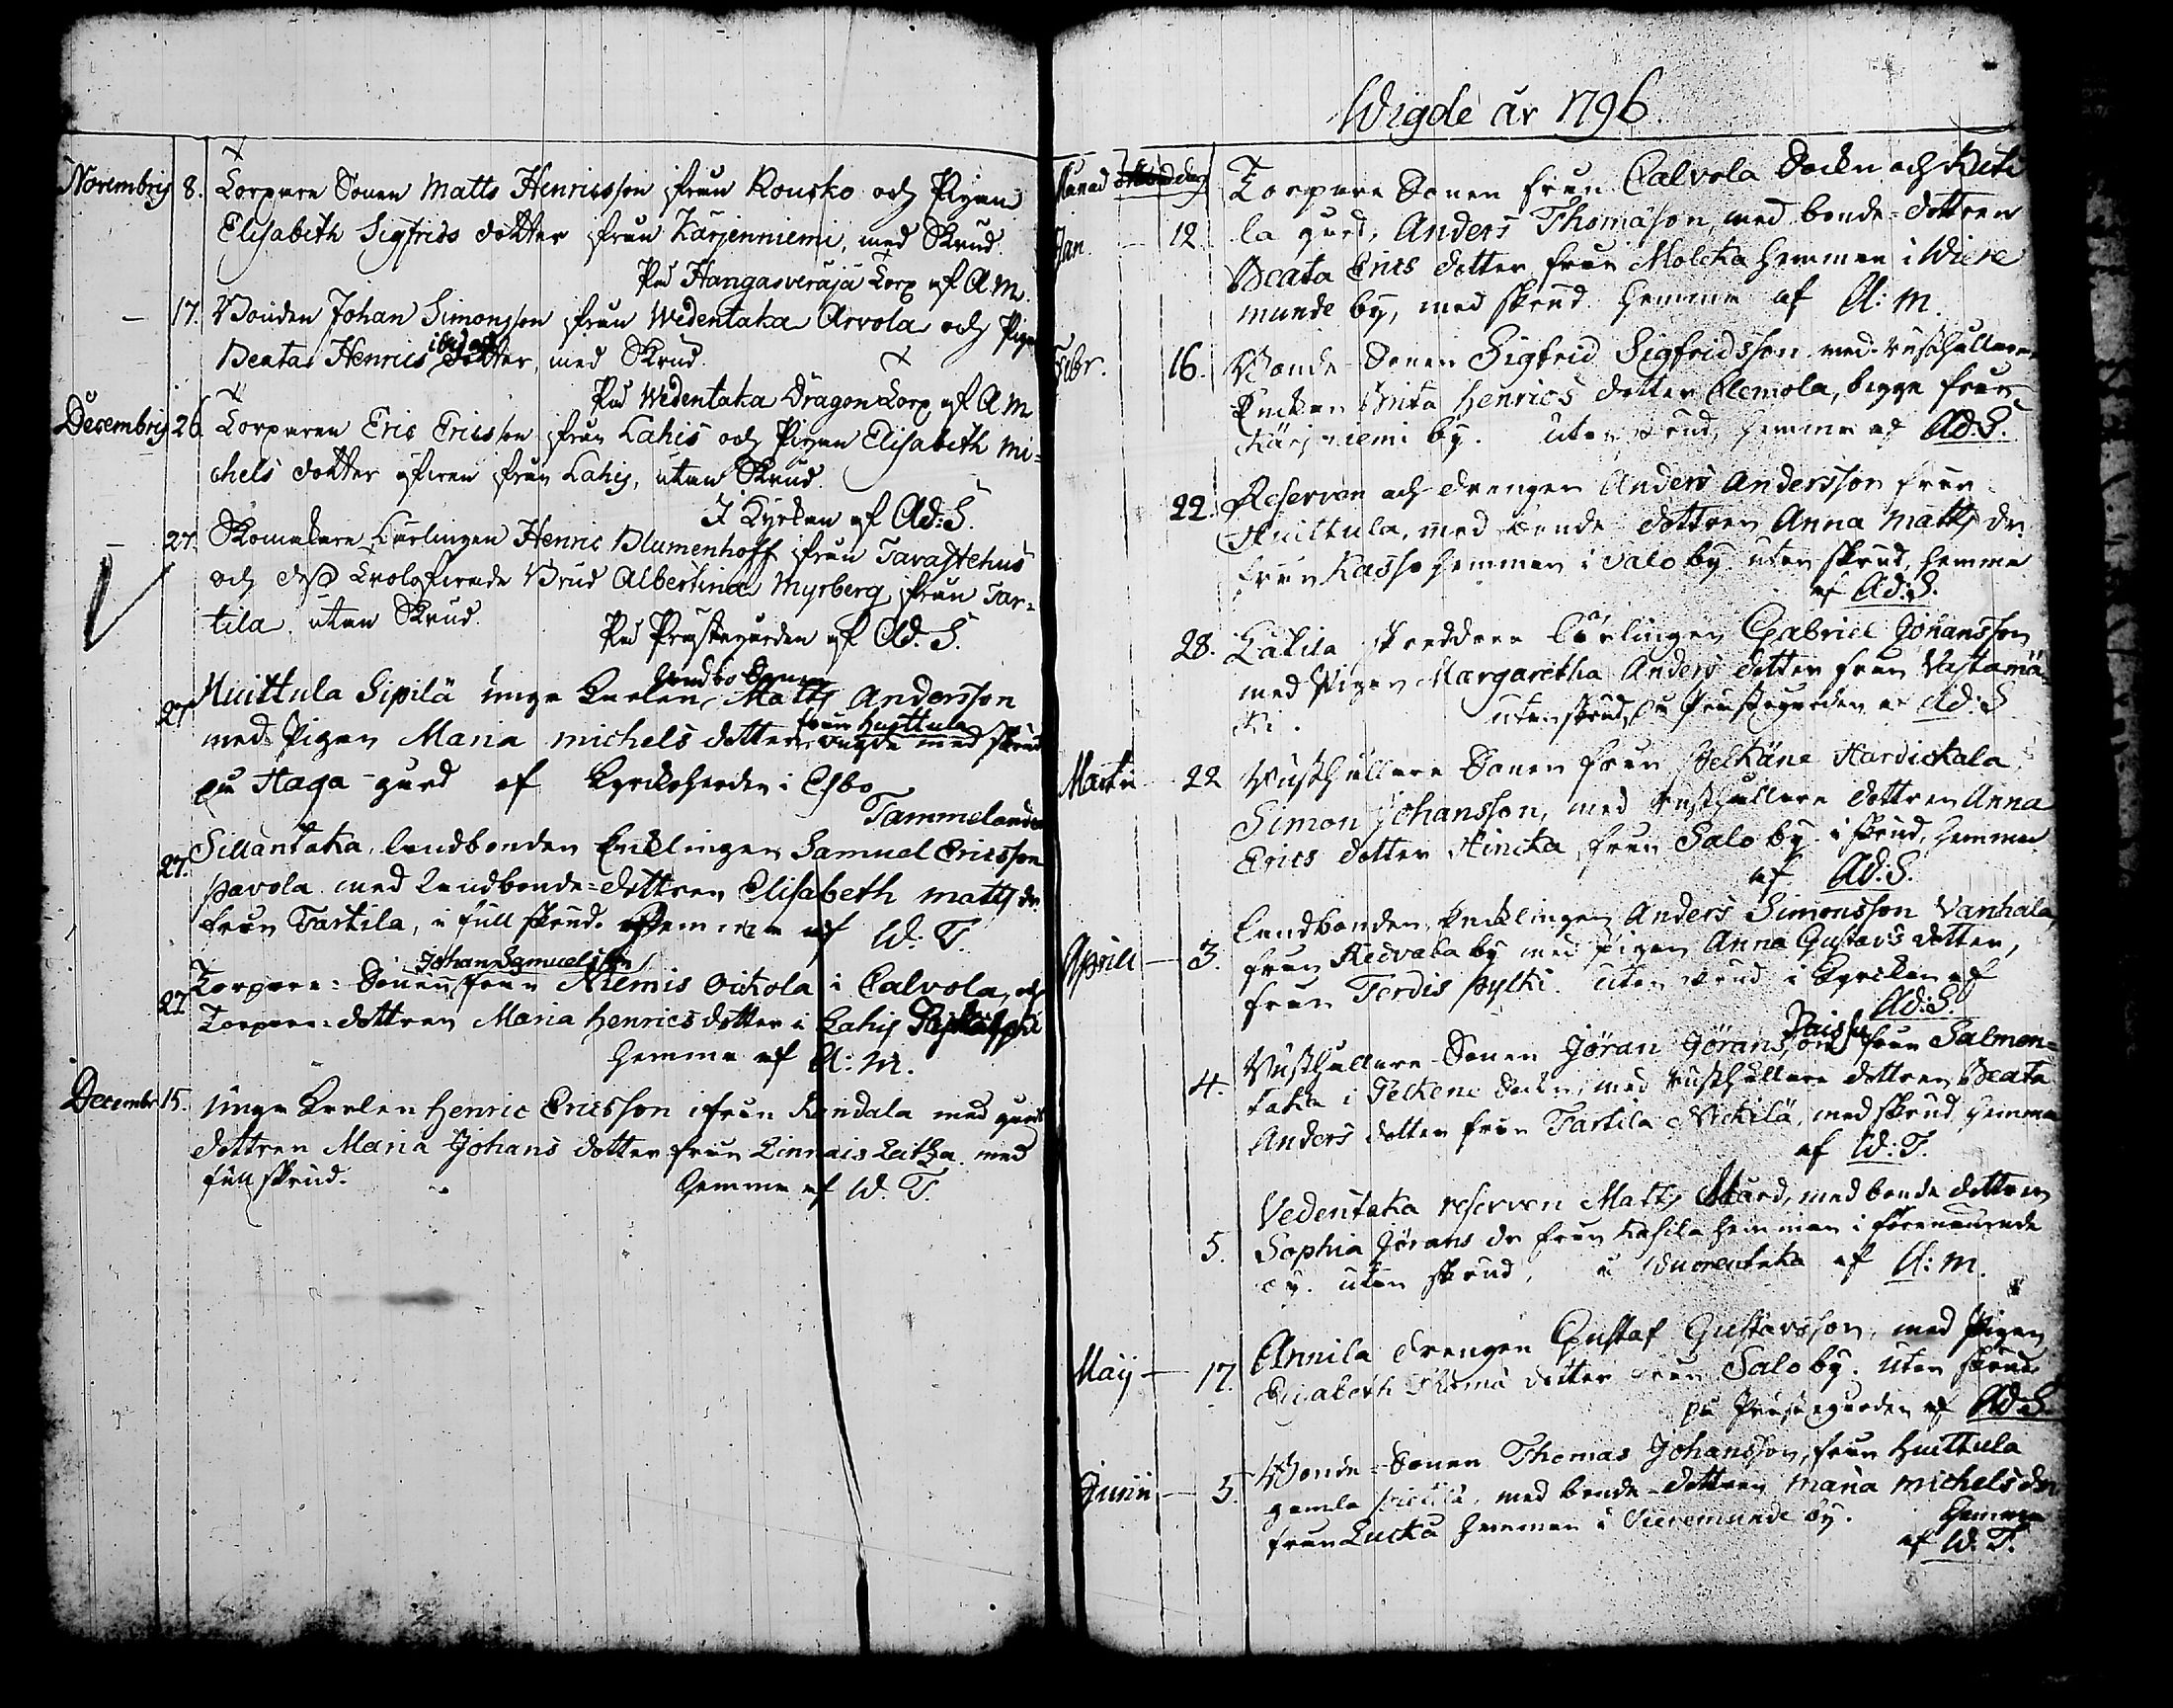 Novembris 8. Torpare Sonen Matts Henricsson ifrån Rousko och Pigan
Elisabeth Sigfrids dotter ifrån Karjenniemi, med Skrud.
På Hangasveräjä Torp af A M.
— 17. Bonden Johan Simonsson ifrån Wedentaka Arvola och Pigan
Beata Henrics dotter, med Skrud.
På Wedentaka Dragon Torp af A M
Decembris 26. Torparen Eric Ericsson ifrån Lahis och Pigan Elisabeth Mi=
chels dotter ifrån Lahis, utan Skrud.
I Kyrkan af Ad: S.
— 27. Skomakare Lärlingen Henric Blumenhoff ifrån Tavastehus
och dess trolofvade Brud Albertina Myrberg ifrån Tar=
tila utan Skrud.
På Prästegården af Ad. S.
Landbo Sonen
27. Huittula Sipilä unga Karlen, Matts Andersson
från Huittula
med Pigan Maria Michels dotter, vigde med skrud
på Haga gård af Kyrkoherden i Esbo
Tammelander
27. Sillantaka landbonden Encklingen Samuel Ericsson
Pavola med Landbonde=dottren Elisabeth Matts dr.
från Tartila, i full skrud. Hemma af W. T.
Johan Samuelsson
27. Torpare=Sonen från Niemis Oickola i Calvola, och
Torpare=dottren Maria Henrics dotter i Lahis
Hemma af A: M.
Decembr 15. Unga Karlen Henric Ericsson ifrån Randala med
dottren Maria Johans dotter från Linnais Laitza. med
full skrud. Hemma af W. T.

Wigde år 1796
Månad och dag
Torpare Sonen från Calvola Socken och
Jan. — 12. la gård, Anders Thomasson, med bonde=dottren
Beata Erics dotter från Molcka Hemman i Wiere
munde by, med skrud Hemma af A: M.
Febr. 16. Bonde Sonen Sigfrid Sigfridsson med rusthållare
Enckan Brita Henrics dotter Clemola, begge från
Kärjniemi by. Utan skrud, Hemma af Ad: S.
22. Reserven och drengen Anders Andersson från
Huittula, med bonde dottren Anna Matts dr
från Kasso hemman i Salo by utan skrud, hemma
af Ad: S.
28. Laħila skräddare Lärlingen Gabriel Johansson
med Pigan Margaretha Anders dotter från Vastamä
ki. utan skrud, på Prästegården af Ad: S
Martii 22 Rusthållare Sonen från Pelkäne Hardickala
Simon Johansson, med rusthållare dottren Anna
Erics dotter Hincka, från Salo by i skrud, Hemma
af Ad: S.
Landbonden Encklingen Anders Simonsson Vanhala,
Aprill — 3. från Retvala by med Pigan Anna Gustavs dotter,
från Terdis Pylki. Utan skrud i Kyrckan af
Ad: S.
Rusthållare Sonen Jöran Jöransson från Salmen=
4. taka i Pelkene Sockn, med rusthållare dottren Beata
Anders dotter från Tartila Nickilä, med skrud, Hemma
af W: T.
Vedentaka reserven Matts Mård, med bonde dottren
5. Sophia Jörans dr från Kasila hemman i förenämnde
by. utan skrud, i Wuorentaka af A: M.
Annila drengen Gustaf Gustavsson, med Pigan
Maij — 17. Elisabeth Thomas dotter från Salo by. Utan skrud
på Prästegården af Ad. S.
Bonde=Sonen Thomas Johansson, från Huittula
Junii — 5. gamla, med bonde=dottren Maria Michels dr
från Lucka hemman i Vieremunde by. Hemma
af W. T.